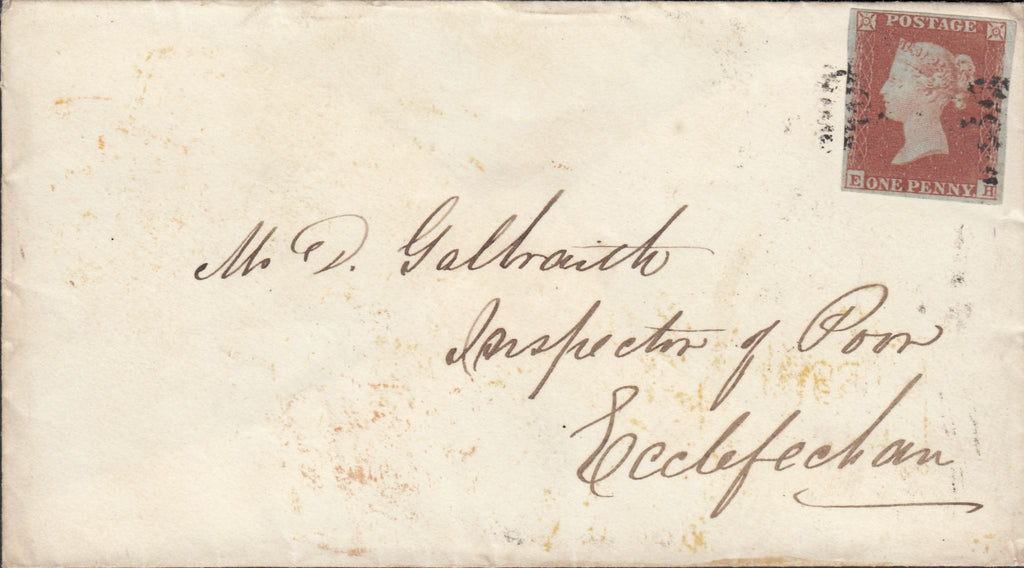 POSTAGE
E ONE PENNY H
Mr D. Galbraith
Inspector of Poor
Ecclefechan